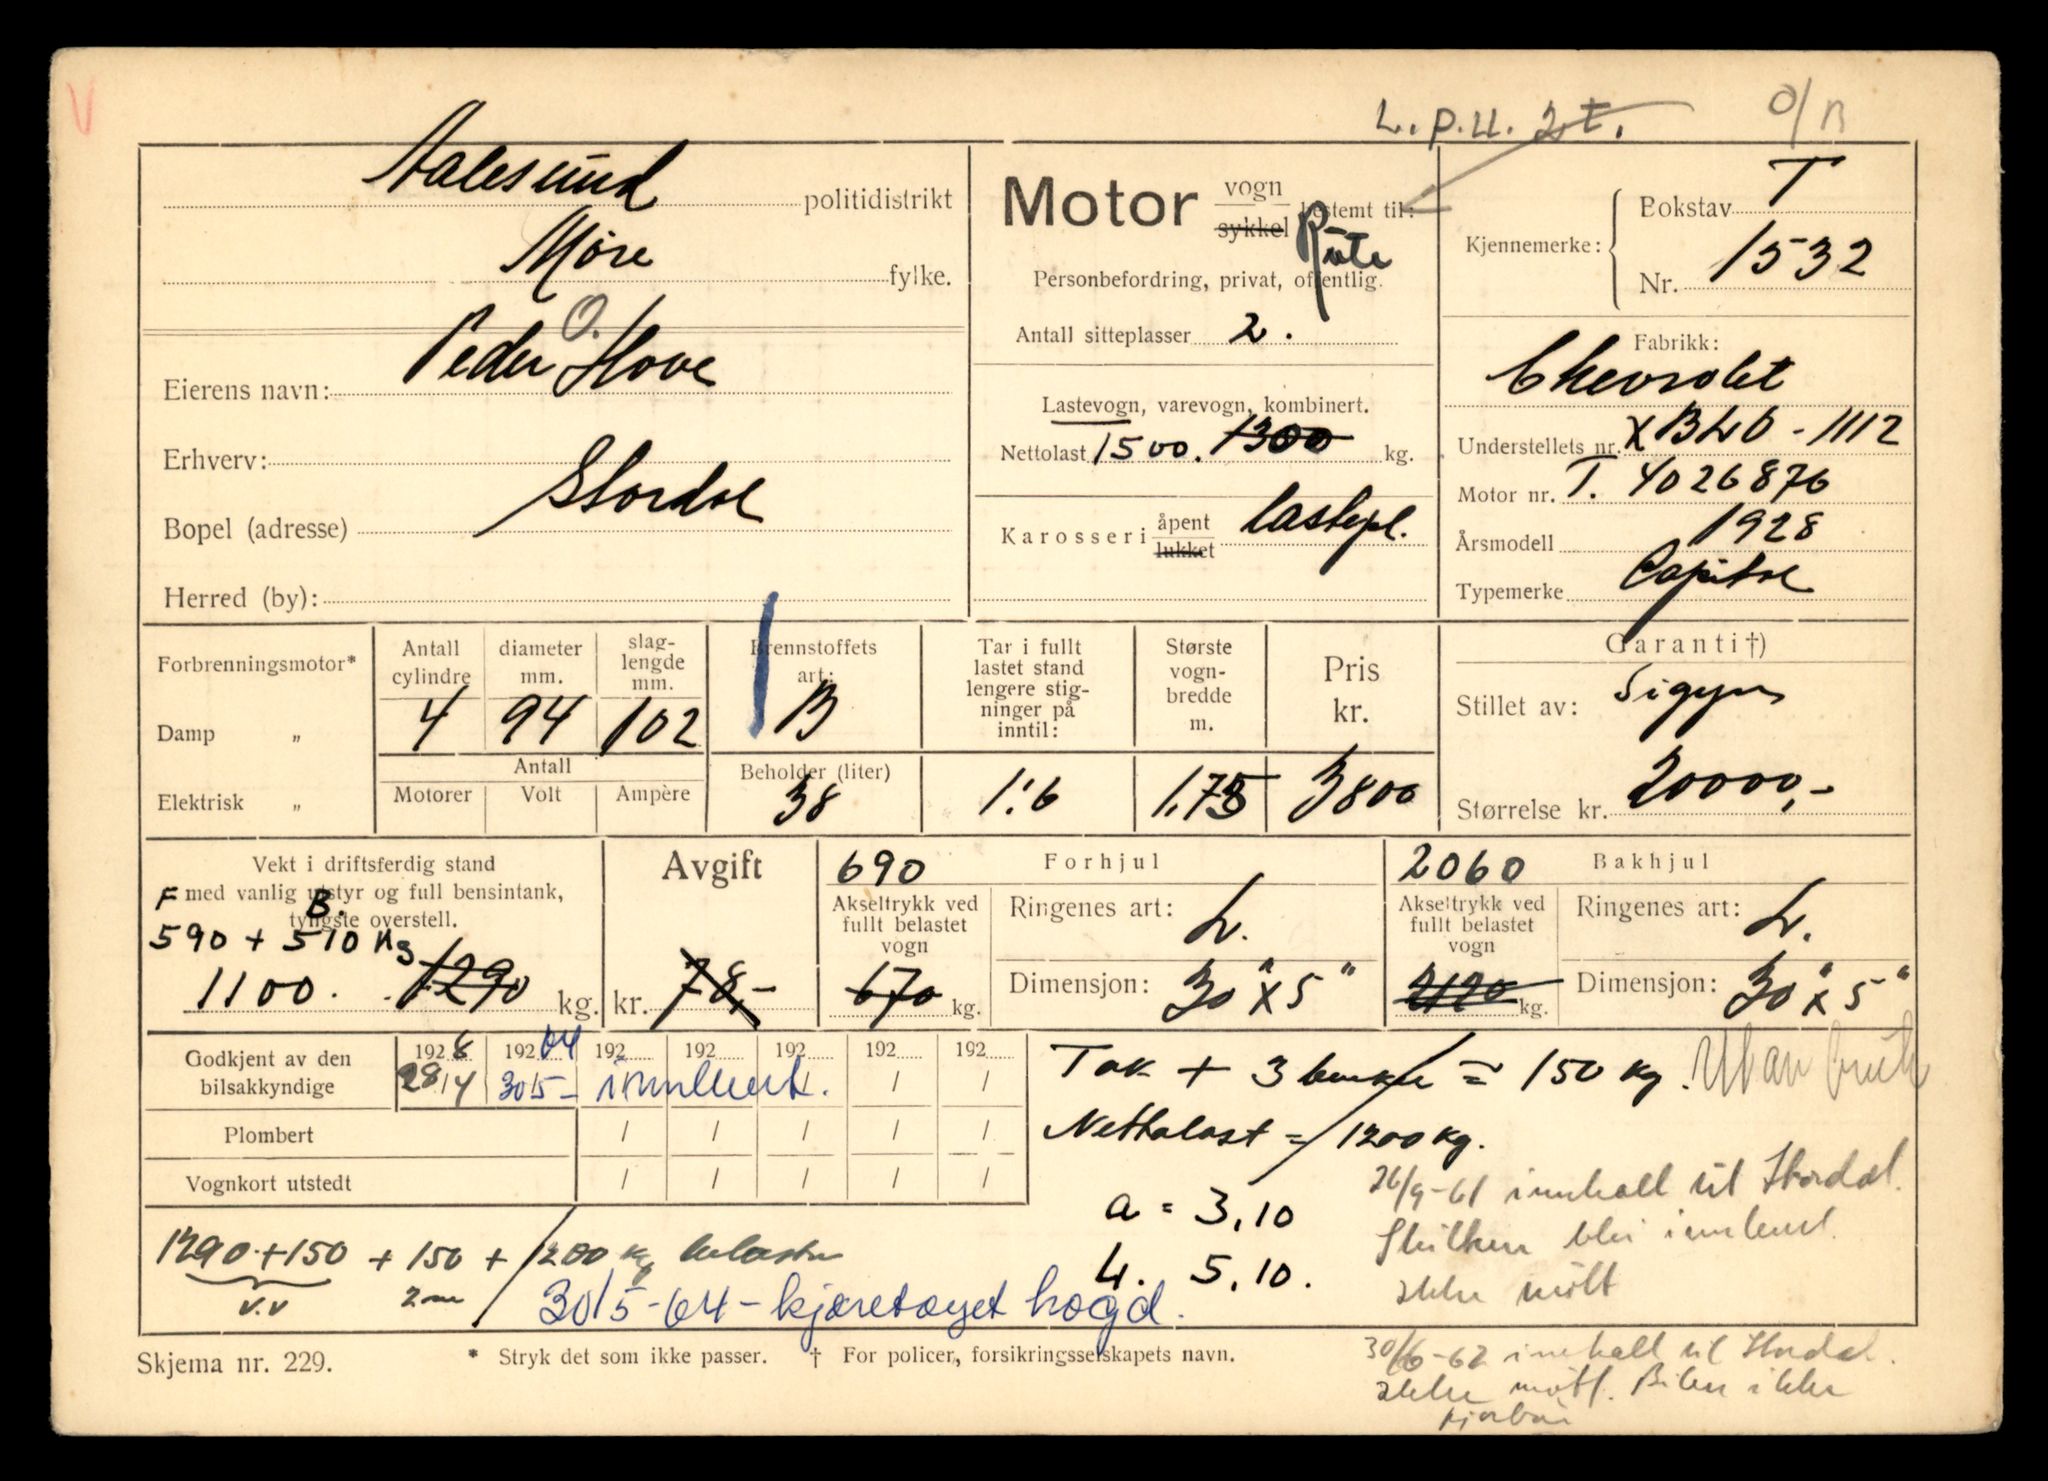 V
L.p.u. 2t.
O/B
Aalesund politidistrikt
Møre fylke.
Eierens navn: Peder O. Hove
Erhverv:
Bopel (adresse) Stordal
Herred (by):
Motor vogn
sykkel bestemt til:
Rute
Personbefordring, privat, offentlig.
Antall sitteplasser 2.
Lastevogn, varevogn, kombinert.
Nettolast 1500. 1300 kg.
Karosseri åpent
lukket lastepl.
Kjennemerke: Bokstav T
Nr. 1532
Fabrikk:
Chevrolet
Understellets nr. XBLO-1112
Motor nr. T. 4026876
Årsmodell 1928
Typemerke Capitol
Forbrenningsmotor*
Damp "
Elektrisk "
Antall cylindre
4
diameter mm.
94
slag-
lengde
mm.
102
Antall
Motorer Volt Ampère
Brennstoffets
art:
B
Beholder (liter)
38
Tar i fullt
lastet stand
lengere stig-
ninger på
inntil:
1:6
Største
vogn-
bredde
m.
1.75
Pris
kr.
3800
Garanti †)
Stillet av: Sigyn
Størrelse kr. 20000,-
Vekt i driftsferdig stand
F med vanlig utstyr og full bensintank,
B. tyngste overstell.
590 + 510 Kg
1100. 1290 kg.
Avgift
kr. 78,-
690 Forhjul
Akseltrykk ved
fullt belastet
vogn
670 kg.
Ringenes art: L.
Dimensjon: 30" x 5"
2060 Bakhjul
Akseltrykk ved
fullt belastet
vogn
2120 kg.
Ringenes art: L.
Dimensjon: 30" x 5"
Godkjent av den
bilsakkyndige
1928 19264 192 192 192 192 192
28/4 30/5- innkent. / /
Plombert / / / / /
Vognkort utstedt / / / / /
Tak + 3 benker = 150 kg. Utan bruk
Nettolast = 1200 kg.
a = 3,10
L. 5,10.
26/9-61 innkalt til Stordal.
Skilter blei innlevert.
ikke møtt
1290 + 150 + 150 + 1200 kg belastn
v.v 2m
30/5-64-kjøretøyet hogd.
Skjema nr. 229.
* Stryk det som ikke passer. † For policer, forsikringsselskapets navn.
30/6-62 innkalt til Stordal.
ikke møtt. Bilen ikke
kjørbar